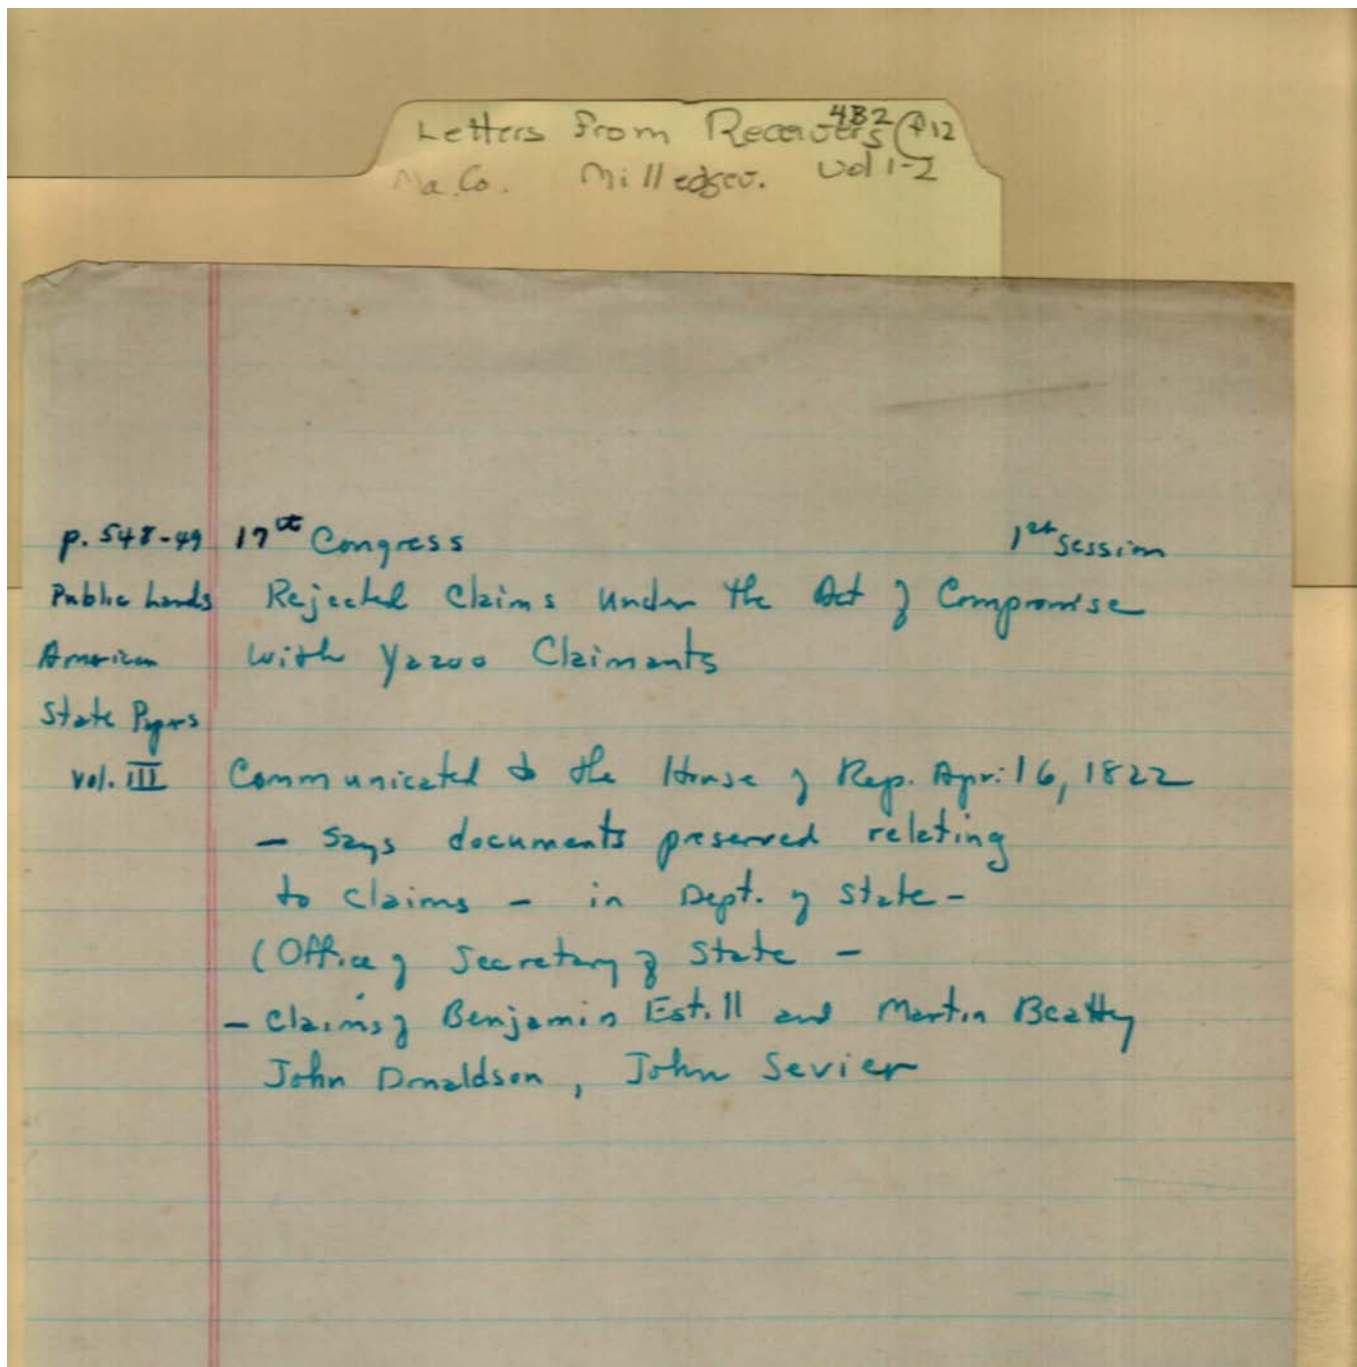 Letters From Receivers 4B2 #12
Ma. Co. Milledgev. Vol 1-2
p. 548-49 17th Congress 1st Session
Public Lands Rejected Claims under the Act of Compromise
American with Yazoo Claimants
State Papers
vol. III Communicated to the House of Rep. April 6, 1822
- says documents preserved relating
to claims - in Dept. of State -
(Office of Secretary of State -
- Claims of Benjamin Estill and Martin Beatty
John Donaldson, John Sevier